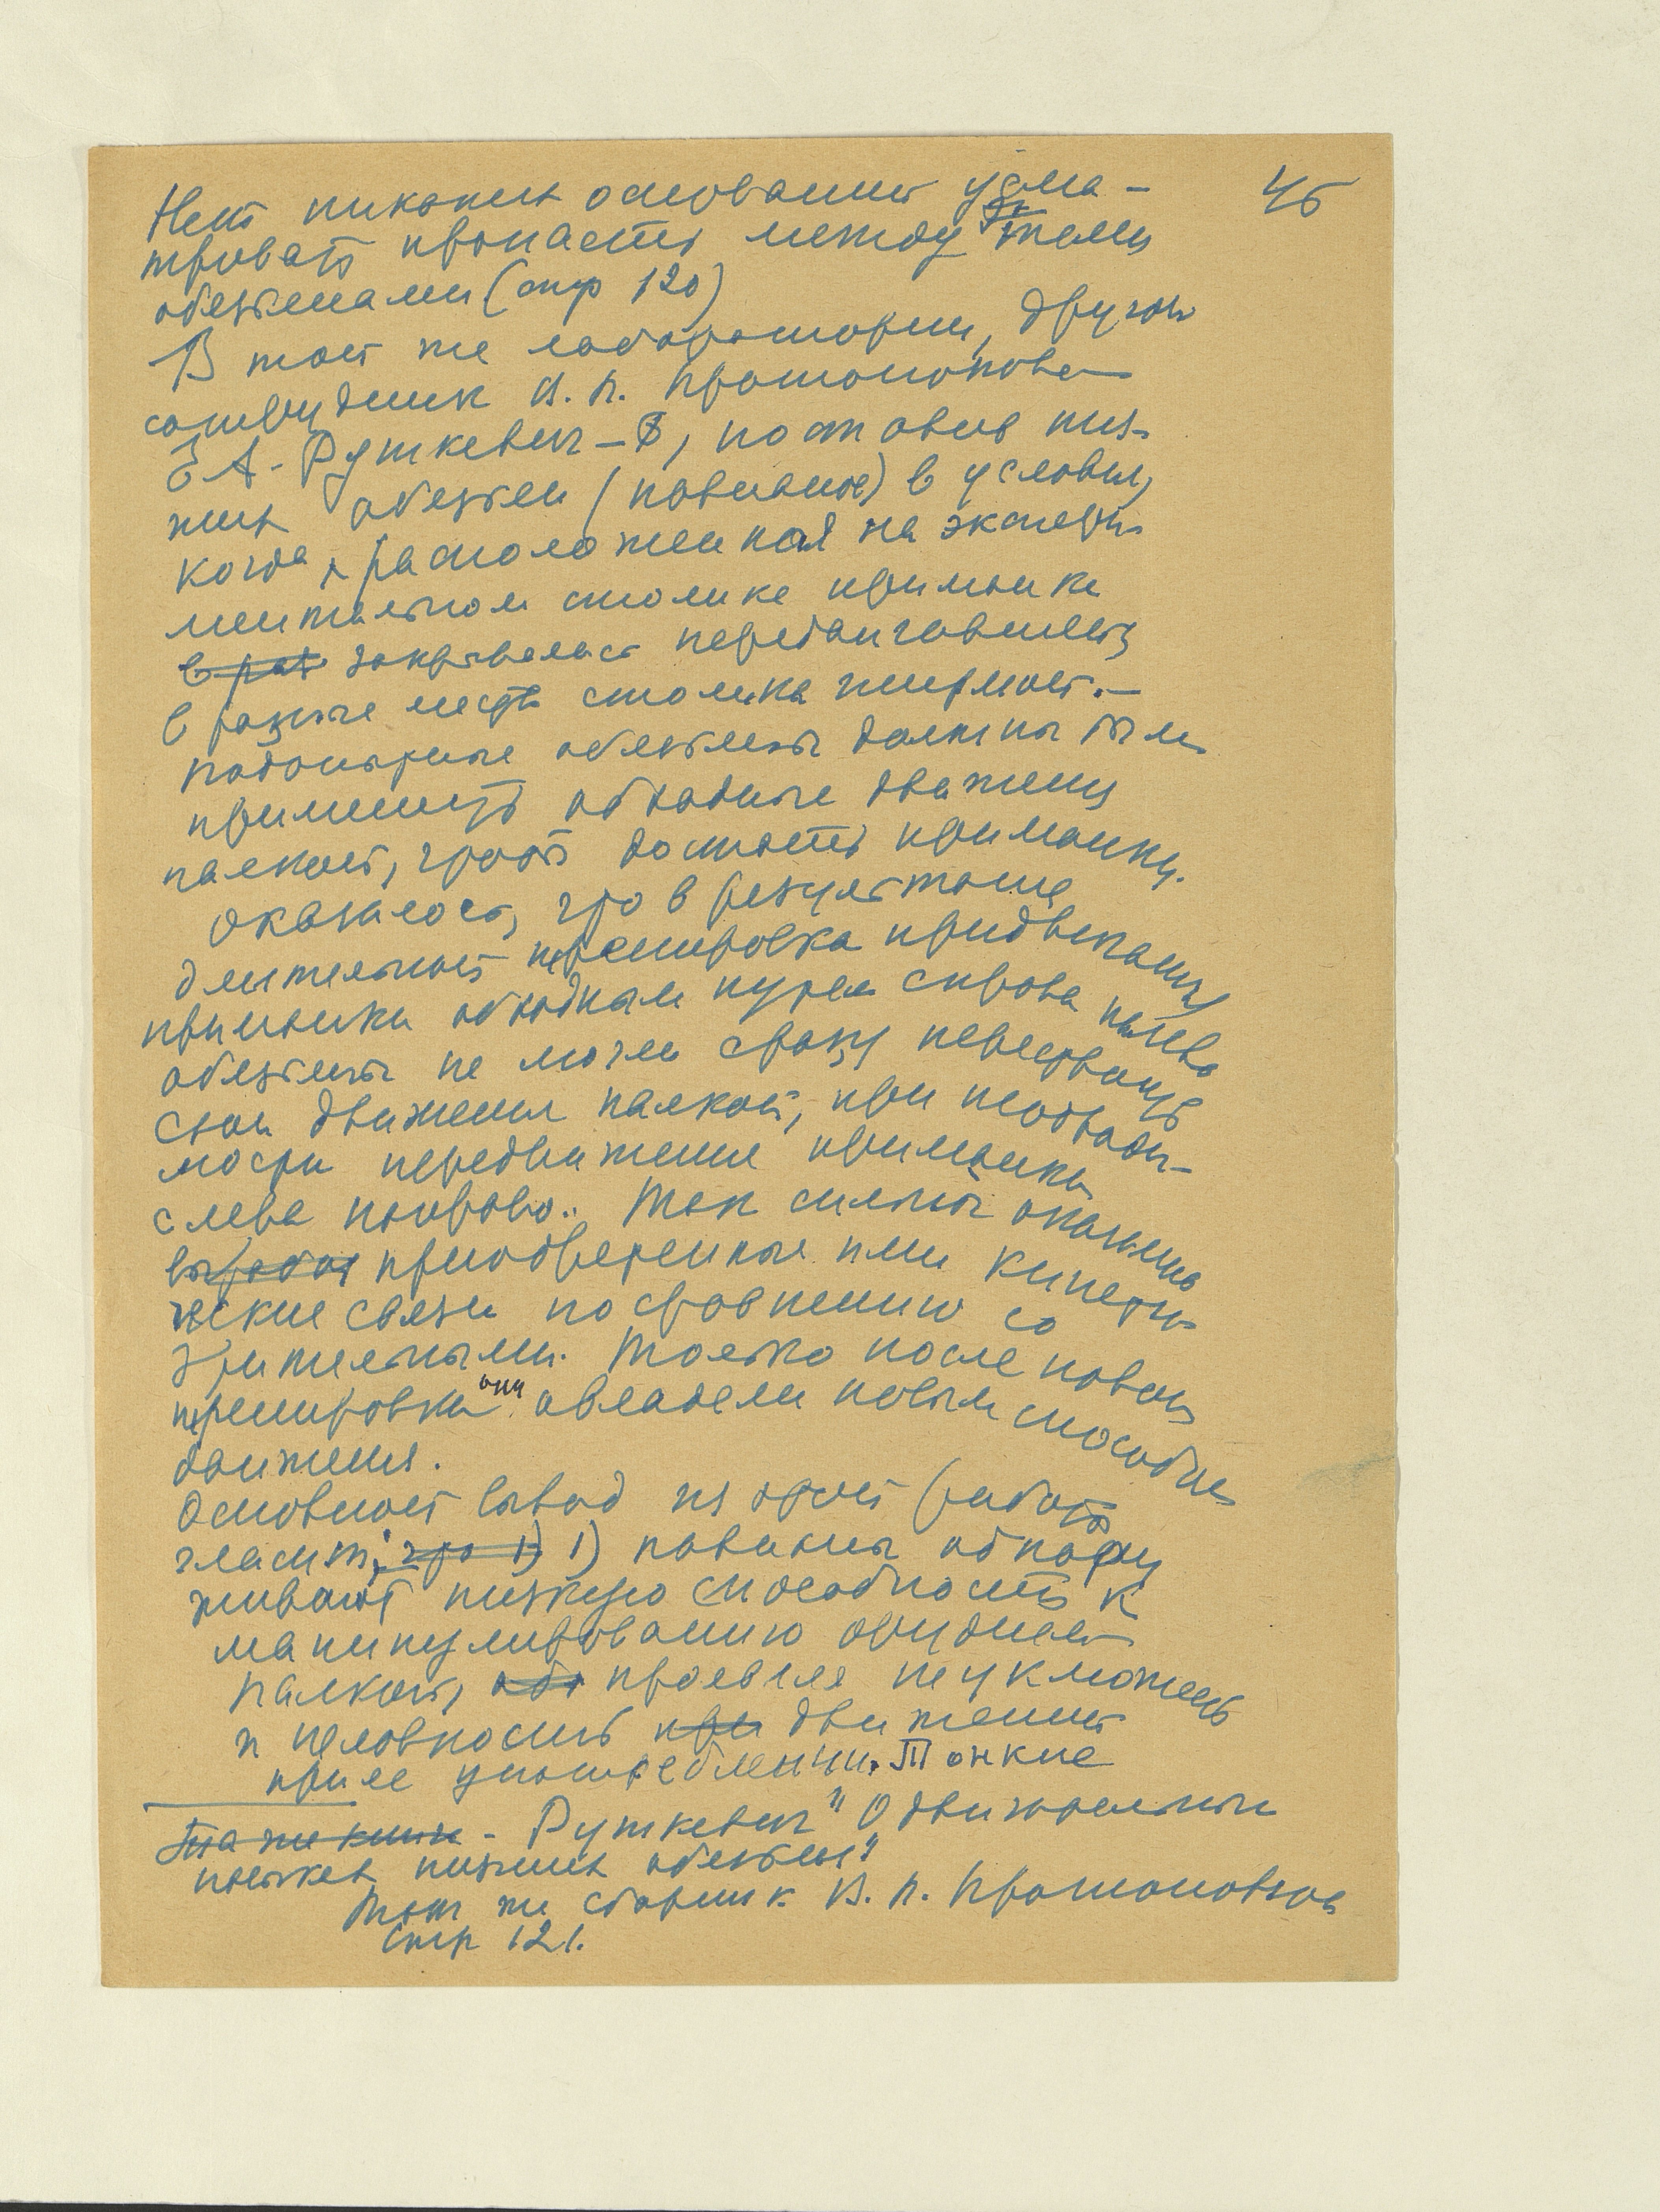 45
Нет никаких оснований усма-
тривать пропасть между теми
обезьянами (стр 120)
В той же лаборатории, другой
сотрудник В. П. Протопопова
Е А. Рушкевич – , поставив низ-
ших обезьян (павианов) в условия,
когда расположенная на экспери-
ментальном столике приманка
в раз закрывалась передвигавшейся
в разные места столика ширмой. –
подопытные обезьяны должны были
применить обходные движения
палкой, чтобы достать приманку.
Оказалось, что в результате
длительной тренировки придвигания
приманки обходным путем справа налево
обезьяны не могли сразу перестроить
свои движения палкой, при необходи-
мости передвижения приманки
слева направо. Так сильны оказались
выработ приобретенные ими кинети-
ческие связи по сравнению со
зрительными. Только после новой
тренировки они овладели новым способом
движения.
Основной вывод из этой работы
гласит: что 1) 1) павианы обнару
живают низкую способность к
манипулированию орудием
палкой, обн проявляя неуклюжесть
и неловкость при движений
при ее употреблении. Тонкие
Та же книга - Рушкевич "О двигательных
навыках низших обезьян"
Тот же сборник В. П. Протопопова
стр 121.